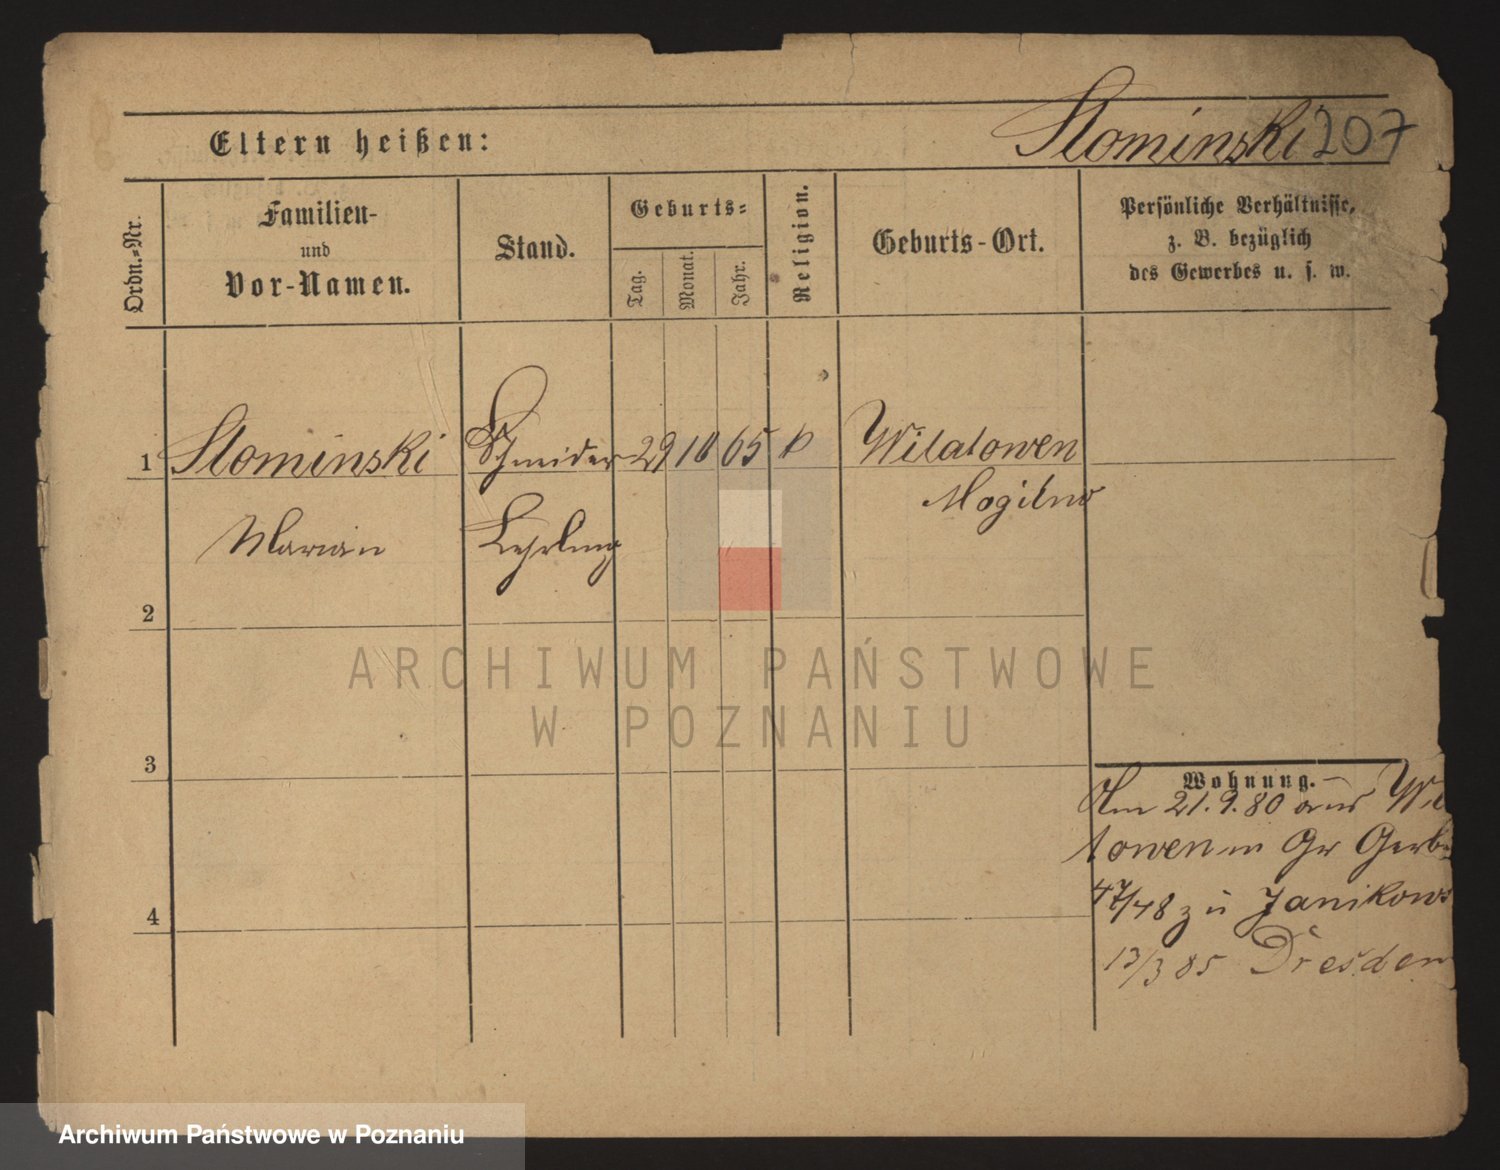 Eltern heißen:
Slominski 207
Ordn.-Nr.
Familien-
und
Vor-Namen.
Stand.
Geburts-
Tag.
Monat.
Jahr.
Religion.
Geburts-Ort.
Persönliche Verhältnisse,
z. B. bezüglich
des Gewerbes u. s. w.
1 Slominski Schneider 29 10 65 k Wilatowen
Mogilno
Marian Lehrling
2
3
4
Wohnung.
Am 21.9.80 aus Wila
towen in Gr Gerb
47/48 zu Janikows
13/3 85 Dresden
ARCHIWUM PAŃSTWOWE
W POZNANIU
Archiwum Państwowe w Poznaniu